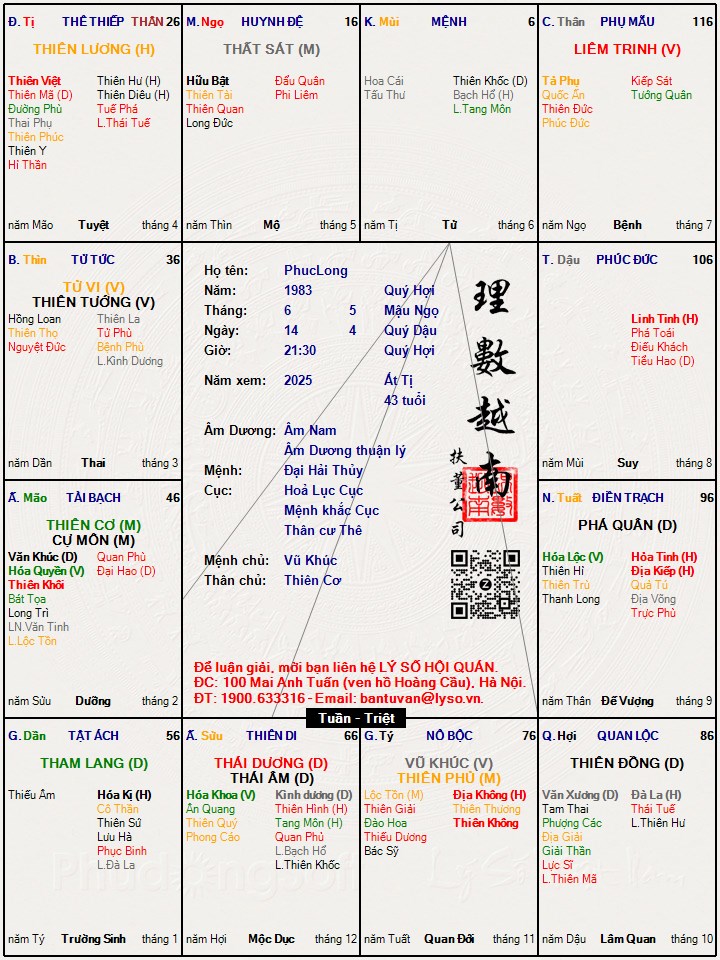 Đ. Tị THÊ THIẾP THÂN 26
THIÊN LƯƠNG (H)
Thiên Việt Thiên Hư (H)
Thiên Mã (D) Thiên Diêu (H)
Đường Phù Tuế Phá
Thai Phụ L.Thái Tuế
Thiên Phúc
Thiên Y
Hỉ Thần
năm Mão Tuyệt tháng 4
M. Ngọ HUYNH ĐỆ 16
THẤT SÁT (M)
Hữu Bật Đẩu Quân
Thiên Tài Phi Liêm
Thiên Quan
Long Đức
năm Thìn Mộ tháng 5
K. Mùi MỆNH 6
Hoa Cái Thiên Khốc (D)
Tấu Thư Bạch Hổ (H)
L.Tang Môn
năm Tị Tử tháng 6
C. Thân PHỤ MẪU 116
LIÊM TRINH (V)
Tả Phụ Kiếp Sát
Quốc Ấn Tướng Quân
Thiên Đức
Phúc Đức
năm Ngọ Bệnh tháng 7
B. Thìn TỬ TỨC 36
TỬ VI (V)
THIÊN TƯỚNG (V)
Hồng Loan Thiên La
Thiên Thọ Tử Phù
Nguyệt Đức Bệnh Phù
L.Kình Dương
năm Dần Thai tháng 3
Họ tên: PhucLong
Năm: 1983 Quý Hợi
Tháng: 6 5 Mậu Ngọ
Ngày: 14 4 Quý Dậu
Giờ: 21:30 Quý Hợi
Năm xem: 2025 Ất Tị
43 tuổi
Âm Dương: Âm Nam
Âm Dương thuận lý
Mệnh: Đại Hải Thủy
Cục: Hoả Lục Cục
Mệnh khắc Cục
Thân cư Thê
Mệnh chủ: Vũ Khúc
Thân chủ: Thiên Cơ
理數越南
扶董公司
Để luận giải, mời bạn liên hệ LÝ SỐ HỘI QUÁN.
ĐC: 100 Mai Anh Tuấn (ven hồ Hoàng Cầu), Hà Nội.
ĐT: 1900.633316 - Email: bantuvan@lyso.vn.
Tuần - Triệt
T. Dậu PHÚC ĐỨC 106
Linh Tinh (H)
Phá Toái
Điếu Khách
Tiểu Hao (D)
năm Mùi Suy tháng 8
Ấ. Mão TÀI BẠCH 46
THIÊN CƠ (M)
CỰ MÔN (M)
Văn Khúc (D) Quan Phù
Hóa Quyền (V) Đại Hao (D)
Thiên Khôi
Bát Tọa
Long Trì
LN.Văn Tinh
L.Lộc Tồn
năm Sửu Dưỡng tháng 2
N. Tuất ĐIỀN TRẠCH 96
PHÁ QUÂN (D)
Hóa Lộc (V) Hỏa Tinh (H)
Thiên Hỉ Địa Kiếp (H)
Thiên Trù Quả Tú
Thanh Long Địa Võng
Trực Phù
năm Thân Đế Vượng tháng 9
G. Dần TẬT ÁCH 56
THAM LANG (D)
Thiếu Âm Hóa Kị (H)
Cô Thần
Thiên Sứ
Lưu Hà
Phục Binh
L.Đà La
năm Tý Trường Sinh tháng 1
Ấ. Sửu THIÊN DI 66
THÁI DƯƠNG (D)
THÁI ÂM (D)
Hóa Khoa (V) Kình dương (D)
Ân Quang Thiên Hình (H)
Thiên Quý Tang Môn (H)
Phong Cáo Quan Phủ
L.Bạch Hổ
L.Thiên Khốc
năm Hợi Mộc Dục tháng 12
G. Tý NÔ BỘC 76
VŨ KHÚC (V)
THIÊN PHỦ (M)
Lộc Tồn (M) Địa Không (H)
Thiên Giải Thiên Thương
Đào Hoa Thiên Không
Thiếu Dương
Bác Sỹ
năm Tuất Quan Đới tháng 11
Q. Hợi QUAN LỘC 86
THIÊN ĐỒNG (D)
Văn Xương (D) Đà La (H)
Tam Thai Thái Tuế
Phượng Các L.Thiên Hư
Địa Giải
Giải Thần
Lực Sĩ
L.Thiên Mã
năm Dậu Lâm Quan tháng 10